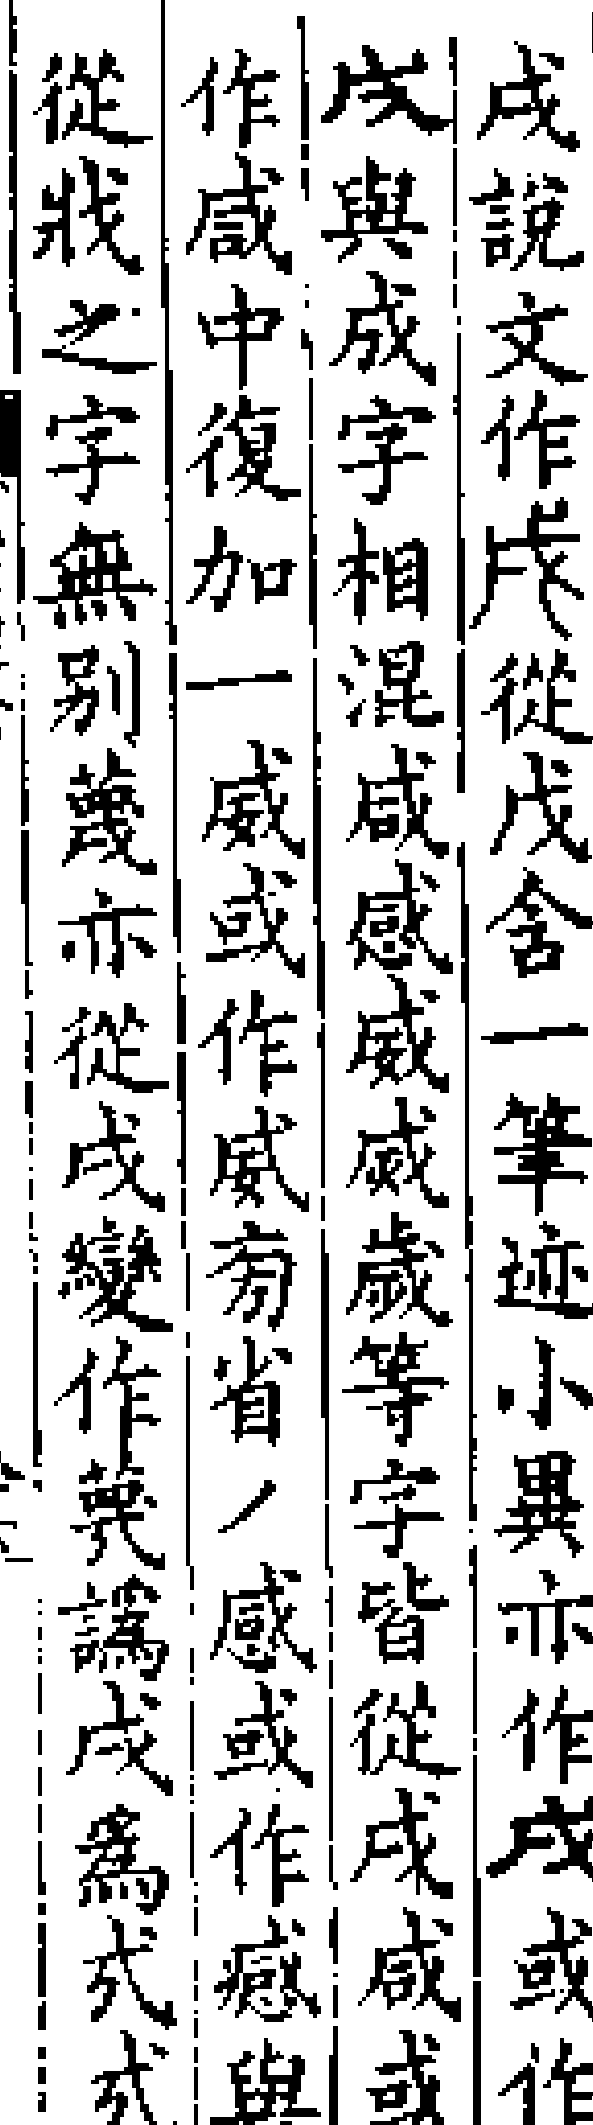 戌說文作戌從戊含一筆迹小異亦作戌或作
戌與成字相混咸感威烕歲等字皆從戌咸或
作咸中復加一威或作威㫄省丿感或作㦗與
從戕之字無別蔑亦從戌變作蔑譌戌爲𢦏